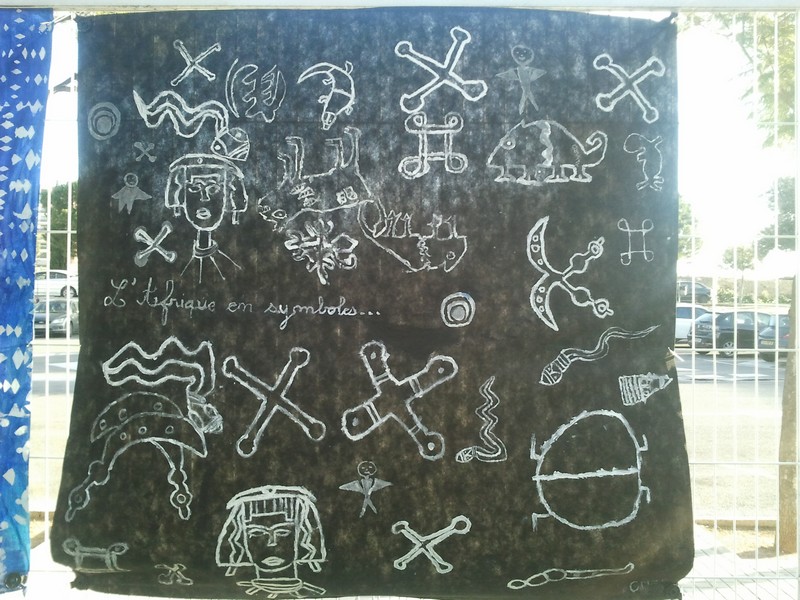 L'Afrique en symboles...